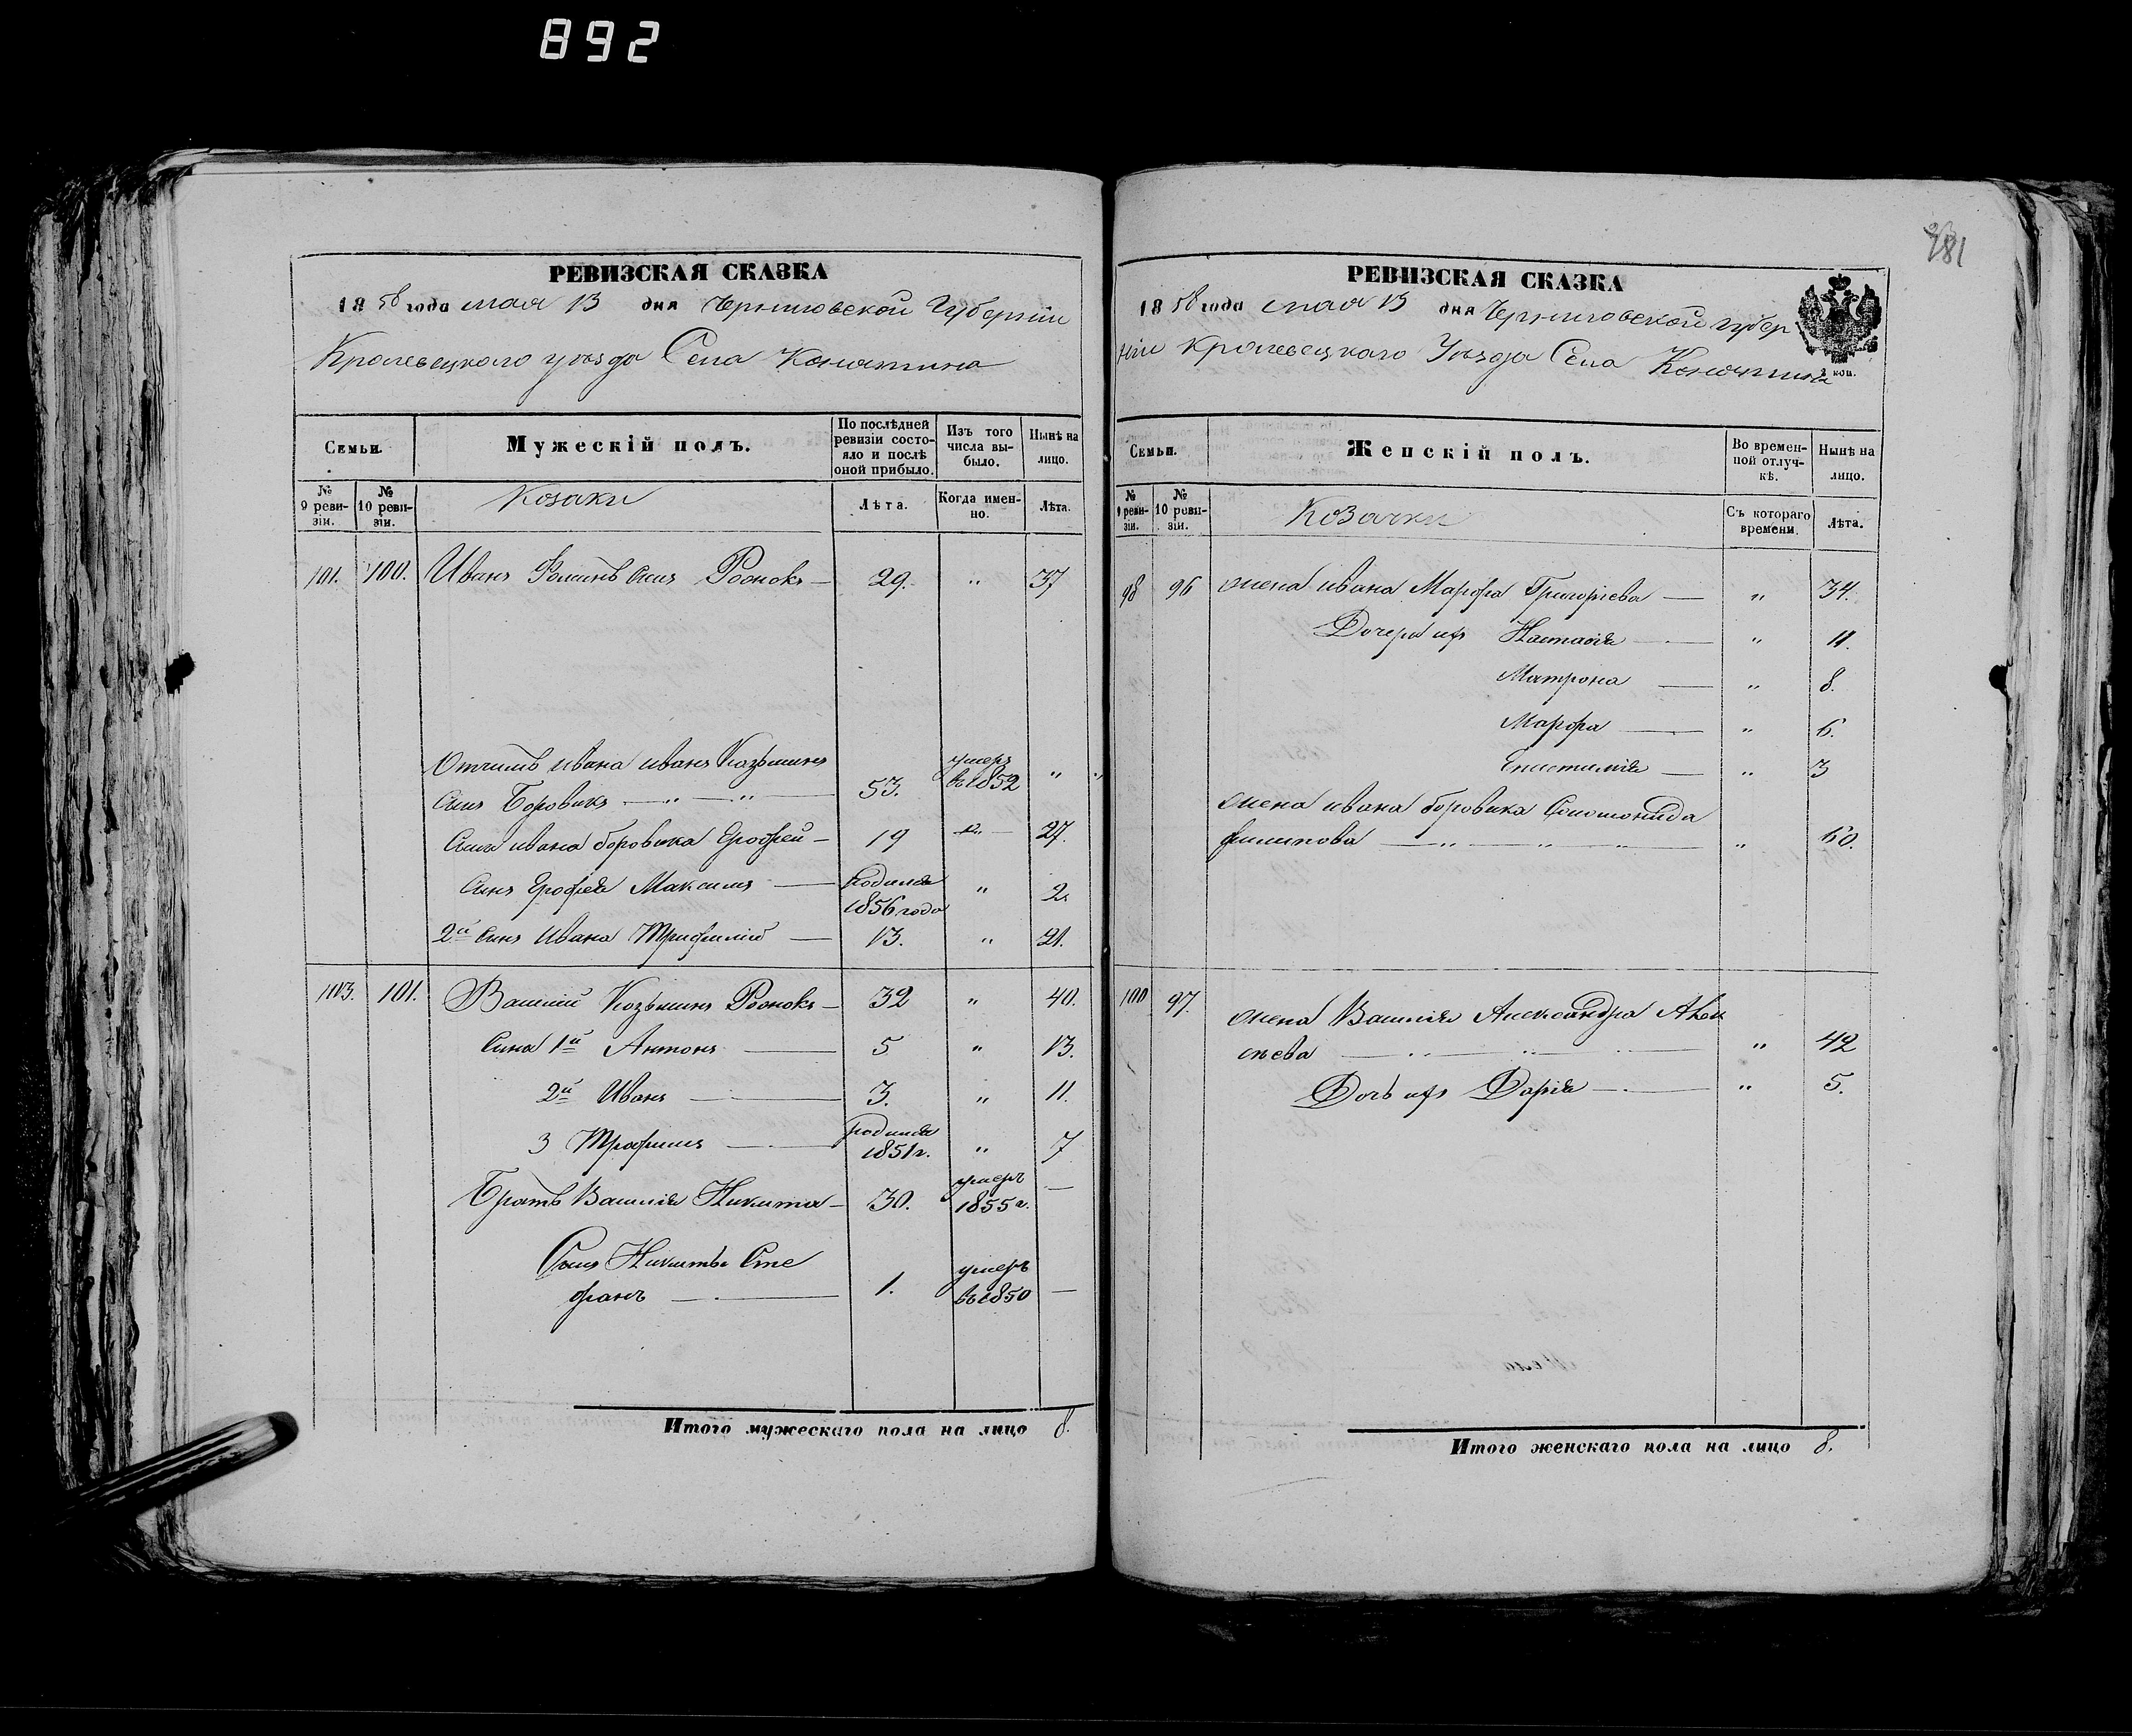 892
РЕВИЗСКАЯ СКАЗКА
1858 года мая 13 дня Черниговской Губерніи
Кролевецкого уѣзда Села
Семьи.
Мужескій полъ.
По послѣдней ревизіи состояло и послѣ оной прибыло.
Изъ того числа выбыло.
Нынѣ на лицо.
№ 9 ревизіи.
№ 10 ревизіи.
Козаки
Лѣта.
Когда именно.
Лѣта.
101. 100. Иванъ Фоминъ Сынъ — 29. " 37
Отчимъ ивана иванъ Козьминъ умеръ
Сынъ Боровикъ — " — " — 53. въ 1852 "
Сынъ ивана боровика Ерофей — 19 " 27.
Сынъ Ерофея Максимъ — Родился 1856 года " 2.
2й Сынъ Ивана — 13. " 21.
103. 101. Василій Козьминъ — 32 " 40.
Сына 1й Антонъ — 5 " 13.
2й Иванъ — 3. " 11.
3 Трофимъ — родился 1851 г. " 7
Братъ Василія Никита — 30. умеръ 1855 г. —
Сынъ Никиты Сте
фанъ — 1. умеръ въ 1850 —
Итого мужескаго пола на лицо 8.
181
РЕВИЗСКАЯ СКАЗКА
1858 года мая 13 дня Черниговской губер
ніи Кролевецкаго Уѣзда Села
коп.
Семьи.
Женскій полъ.
Во временной отлучкѣ.
Нынѣ на лицо.
№ 9 ревизіи.
№ 10 ревизіи.
Козачки
Съ котораго времени.
Лѣта.
98 96 жена ивана Марфа Григоріева — " 34.
Дочери ихъ Настасія — " 11.
Матрона — " 8.
Марфа — " 6.
Епистимія — " 3
жена ивана боровика Соломонида
филипова — " — " — " — " 60.
100 97. жена Василія Александра
сѣева — " — " — " 42
Дочь ихъ Дарія — " 5.
Итого женскаго пола на лицо 8.